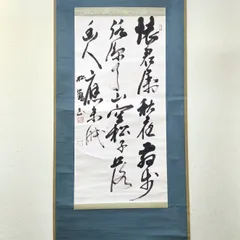 懐君属秋夜散歩
詠涼天山空松子落
幽人應未眠